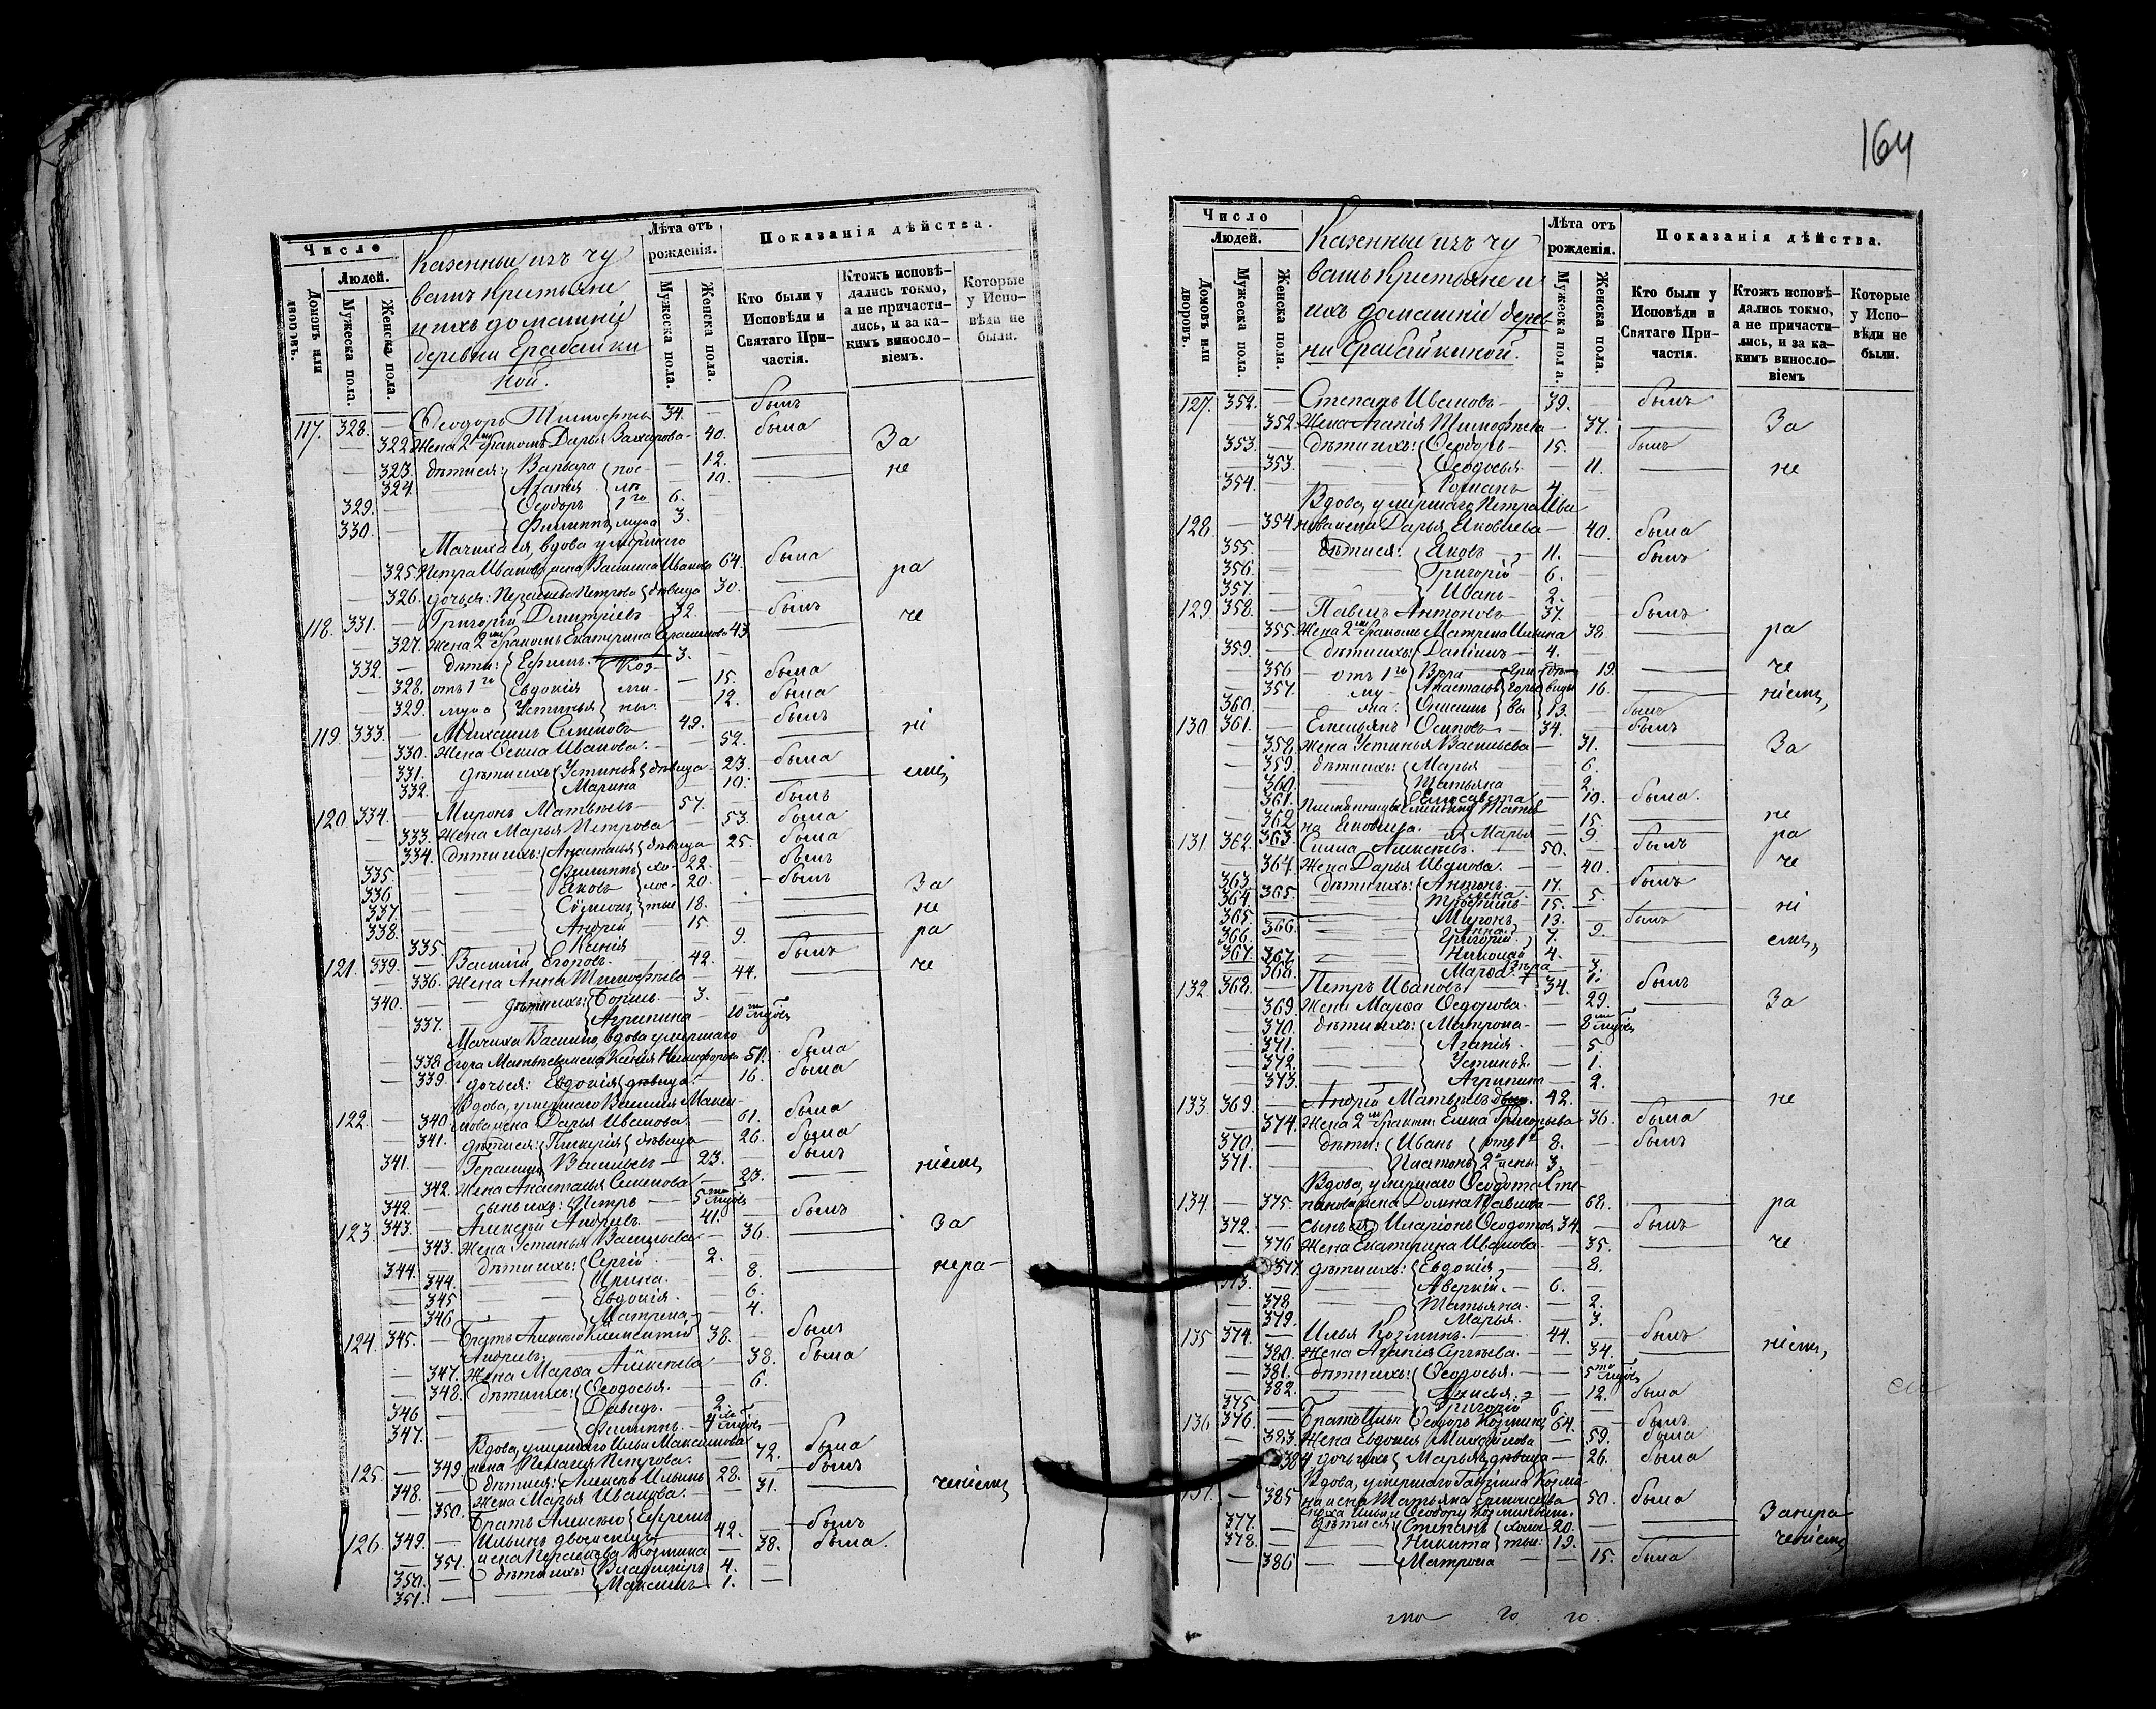 Число
Людей.
Домовъ или дворовъ.
Мужеска пола.
Женска пола.
Казенныи изъ чу
вашъ крестьяне
и ихъ домашніи
деревни Ерабайки
ной.
Лѣта отъ
рожденія.
Мужеска пола.
Женска пола.
Показанія дѣйства.
Кто были у
Исповѣди и
Святаго При-
частія.
Ктожъ исповѣ-
дались токмо,
а не причасти-
лись, и за ка-
кимъ виносло-
віемъ.
Которые
у Испо-
вѣди не
были.
117. 328. — Ѳеодоръ Тимоѳеевъ 34. — былъ
— 322 Жена 2мъ бракомъ Дарья Захарова — 40. была За
— 323. дѣти ея: Варвара пос- — 12. —
— 324. — Агапія лѣ — 10. — не
329. — — Ѳеодоръ 1го 6. —
330. — — Филиппъ мужа 3.
Мачиха ея, вдова умершаго
— 325. Петра Иванова жена Васил Иванова 64. была
— 326. дочь ея: Пераскева Петрова дѣвица 30. — ра
118. 331. — Григорій Димитріевъ 32. — былъ
— 327. Жена 2мъ бракомъ Екатерина Герасимова 43 — че
332. — дѣти: Ефимъ. Коз- 3. —
— 328. отъ 1го Евдокія ми- — 15. была
— 329. мужа Устинья ны. — 12. была
119. 333. — Михаилъ Семеновъ 42. — былъ ні
— 330. Жена Ѳекла Иванова. — 52. —
— 331. дѣти ихъ: Устинья дѣвица — 23. была
332. — Марина — 10. — емъ,
120. 334. — Миронъ Матвѣевъ — 57. — былъ
— 333. Жена Марья Петрова — 53. была
— 334. дѣти ихъ: Анастасья дѣвица — 25. была
335. — — Филиппъ хо- 22. — былъ
336 — — Яковъ лос- 20. — былъ
337. — — Симеонъ тые 18. — За
338. — — Андрей 15. — не
335. — Ксенія 9. — ра
121. 339. — Василій Егоровъ. — 42. — былъ
— 336. Жена Анна Тимоѳеева — 44. — че
340. — дѣти ихъ: Борисъ. — 3. —
337. — Агрипина — 10
Мачиха Василію, вдова умершаго
— 338. Егора Матвѣева жена Ксенія Никифорова 51. была
— 339. дочь ея: Евдокія дѣвица. — 16. была
Вдова, умершаго Василія Макси-
122. — 340 мова жена Дарья Иванова — 61. была
— 341. дѣти ея: Гликерія дѣвица — 26. была
341. — Герасимъ Васильевъ — 23. — былъ
— 342. Жена Анастасья Семенова — 23. — ніемъ,
342. — сынъ ихъ: Петръ — 5
123. 343. — Алексѣй Андреевъ. — 41. — былъ
— 343. Жена Устинья Васильева — 36. — За
344. — дѣти ихъ: Сергій — 2. —
344. — Ирина. — 8. — нера-
345 — Евдокія. — 6.
346 — Матрена — 4.
124. 345. — Братъ Алексѣю Климентій 38. — былъ
Андреевъ.
— 347. Жена Марѳа Алексѣева — 38. была
— 348. дѣти ихъ: Ѳеодосья. — 6.
346 — Давыдъ. — 2.
347. — Филиппъ. — 4
Вдова, умершаго Ильи Максимова
125. — 349. жена Пелагея Петрова. — 72. была
348. — дѣти ея: Алексѣй Ильинъ 28. — былъ
350. Жена Марья Иванова. — 31. — ченіемъ,
Братъ Алексѣю Ефремъ
126. 349. — Ильинъ двоеженецъ 42. — былъ
— 351. жена Пераскева Козмина — 38. была.
350. — дѣти ихъ: Владиміръ 4. —
351. — Максимъ — 1. —
164
Число
Людей.
Домовъ или дворовъ.
Мужеска пола.
Женска пола.
Казенныи изъ чу
вашъ крестьяне и
ихъ домашніи дерев
ни Ерабайкиной.
Лѣта отъ
рожденія.
Мужеска пола.
Женска пола.
Показанія дѣйства.
Кто были у
Исповѣди и
Святаго При-
частія.
Ктожъ исповѣ-
дались токмо,
а не причасти-
лись, и за ка-
кимъ виносло-
віемъ
Которые
у Испо-
вѣди не
были.
127. 352. — Степанъ Ивановъ — 39. — былъ
352. Жена Агапія Тимоѳеева — 37. — За
353. — дѣти ихъ: Ѳеодоръ — 15. — былъ
353. — Ѳеодосья — 11. — не
354. — Романъ 4 —
Вдова, умершаго Петра Ива
128 — 354 нова жена Дарья Яковлева — 40. была
355. — дѣти ея: Яковъ — 11. — былъ
356. — Григорій — 6. —
357. — Иванъ — 2. —
129. 358. — Павелъ Антоновъ — 37. — былъ
355. Жена 2мъ бракомъ Матрена Ильина 38. — ра
359. — дѣти ихъ: Даніилъ — 4. —
356 — отъ 1го Вѣра Гри- дѣ- 19. — че
357. му- Анастасья горье вицы 16. — ніемъ,
360. — жа: Онисимъ вы 13. — былъ
130 361. — Емельянъ Осиповъ — 34. — былъ
— 358. Жена Устинья Васильева — 31. — За
359. дѣти ихъ: Марья — 6.
360. — Татьяна — 2.
361. Племянницы Емельяну Елисавета — 19. — была.
362 Татья на Яковлева. 15 — не
363. и Марья — 9. ра
131 362. Симеонъ Алексѣевъ. — 50. — былъ
— 364. Жена Дарья Иванова. — 40. — че
363. — дѣти ихъ: Антонъ. — 17. — былъ
364. 365. — Елена 5.
15. — ні
365. — Миронъ 13. — былъ
366. — Анна 9.
366. — Григорій. 7. — емъ,
367. — Николай 4. —
368. — Марѳа — 3.
132. 368. — Петръ Ивановъ — 34. — былъ
369. Жена Марѳа Ѳедорова. — 29. — За
370. дѣти ихъ: Матрона — 8
371. — Агапія — 5
372. — Устинья. — 1.
373. — Агрипина — 2.
133 369. — Андрей Матвѣевъ. 42. — не
374. Жена 2мъ бракомъ Елена Григорьева 36. была
370. — дѣти: Иванъ отъ 1й 8. — былъ
371. — Платонъ 2й жены 3. —
Вдова, умершаго Ѳеодота Сте-
134. — 375. панова жена Домна Павлова — 68. — ра
372. — сынъ ея Иларіонъ Ѳеодотовъ 34. — былъ
376 Жена Екатерина Иванова. — 35. — че
377 дѣти ихъ: Евдокія — 8.
373. — Аверкій. — 6. —
378 — Татьяна. — 2.
379. — Марья. — 3.
135 374. — Илья Козминъ. — 44. — былъ
— 380. Жена Агапія Сергѣева. — 34. — ніемъ,
381. дѣти ихъ: Ѳеодосья. — 5
382. — Анисья. — 12. была
375 — Григорій 6 —
136 376. — Братъ Ильи Ѳеодоръ Козминъ 64. — былъ
383. Жена Евдокія Михайлова — 59. была
384 дочь ихъ Марья дѣвица — 26. была
Вдова, умершаго Гавріила Козми
137. — 385 на жена Татьяна Емельянова — 50. была
сноха Ильи и Ѳеодору Козминымъ.
377. — дѣти ея: Степанъ холос- 20. — Занера
378. — Никита тые: 19. — ченіемъ,
— 386 — Матрона — 15. была